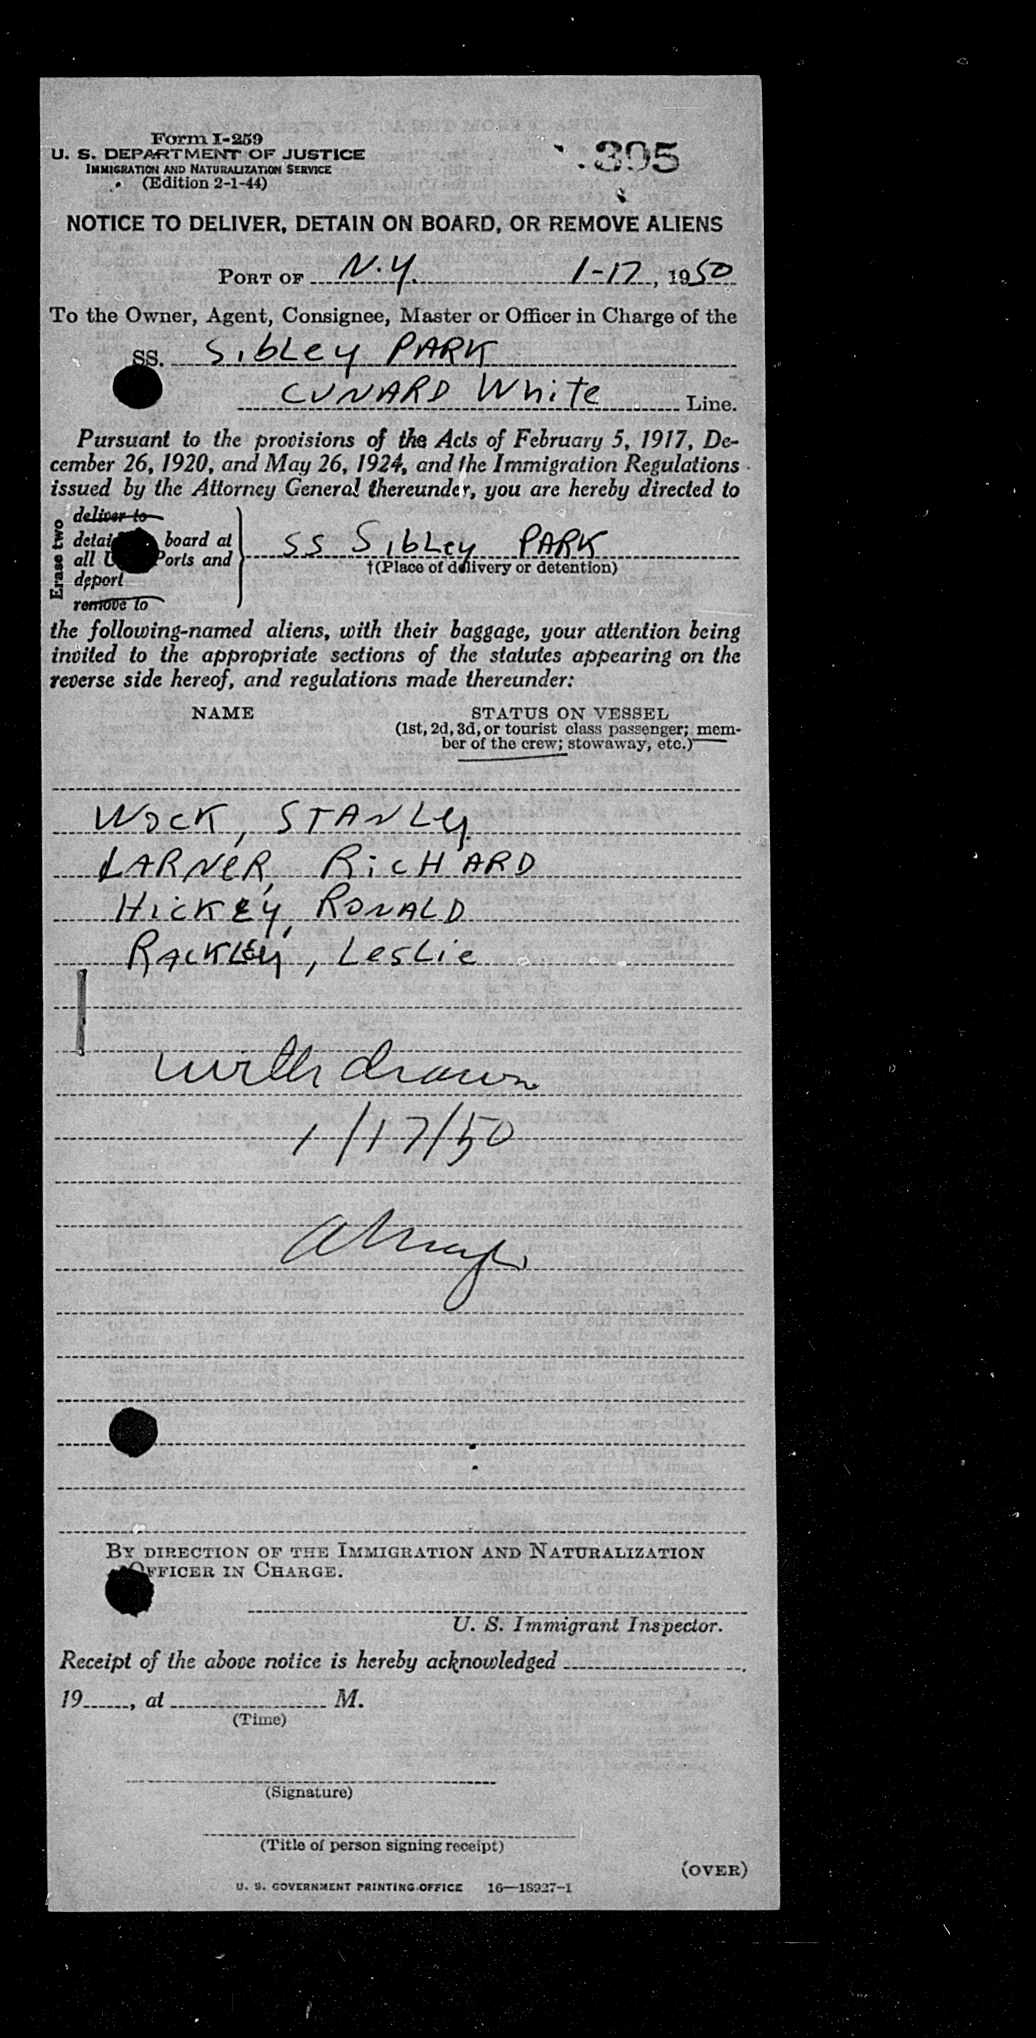 Form I-259
U. S. DEPARTMENT OF JUSTICE
IMMIGRATION AND NATURALIZATION SERVICE
(Edition 2-1-44)
395
NOTICE TO DELIVER, DETAIN ON BOARD, OR REMOVE ALIENS
PORT OF N.Y. 1-17, 1950
To the Owner, Agent, Consignee, Master or Officer in Charge of the
SS. SibLey PARK
CUNARD White Line.
Pursuant to the provisions of the Acts of February 5, 1917, De-
cember 26, 1920, and May 26, 1924, and the Immigration Regulations
issued by the Attorney General thereunder, you are hereby directed to
Erase two
deliver to
detai board at
all U Ports and
deport
remove to
SS SibLey PARK
†(Place of delivery or detention)
the following-named aliens, with their baggage, your attention being
invited to the appropriate sections of the statutes appearing on the
reverse side hereof, and regulations made thereunder:
NAME
STATUS ON VESSEL
(1st, 2d, 3d, or tourist class passenger; mem-
ber of the crew; stowaway, etc.)
WOCK, STANLEy
LARNER, RiCHARD
HiCKEy, RONALD
RACKLEy, LesLie
withdrawn
1/17/50
BY DIRECTION OF THE IMMIGRATION AND NATURALIZATION
OFFICER IN CHARGE.
U. S. Immigrant Inspector.
Receipt of the above notice is hereby acknowledged
19, at M.
(Time)
(Signature)
(Title of person signing receipt)
(OVER)
U. S. GOVERNMENT PRINTING OFFICE 16—18927-1